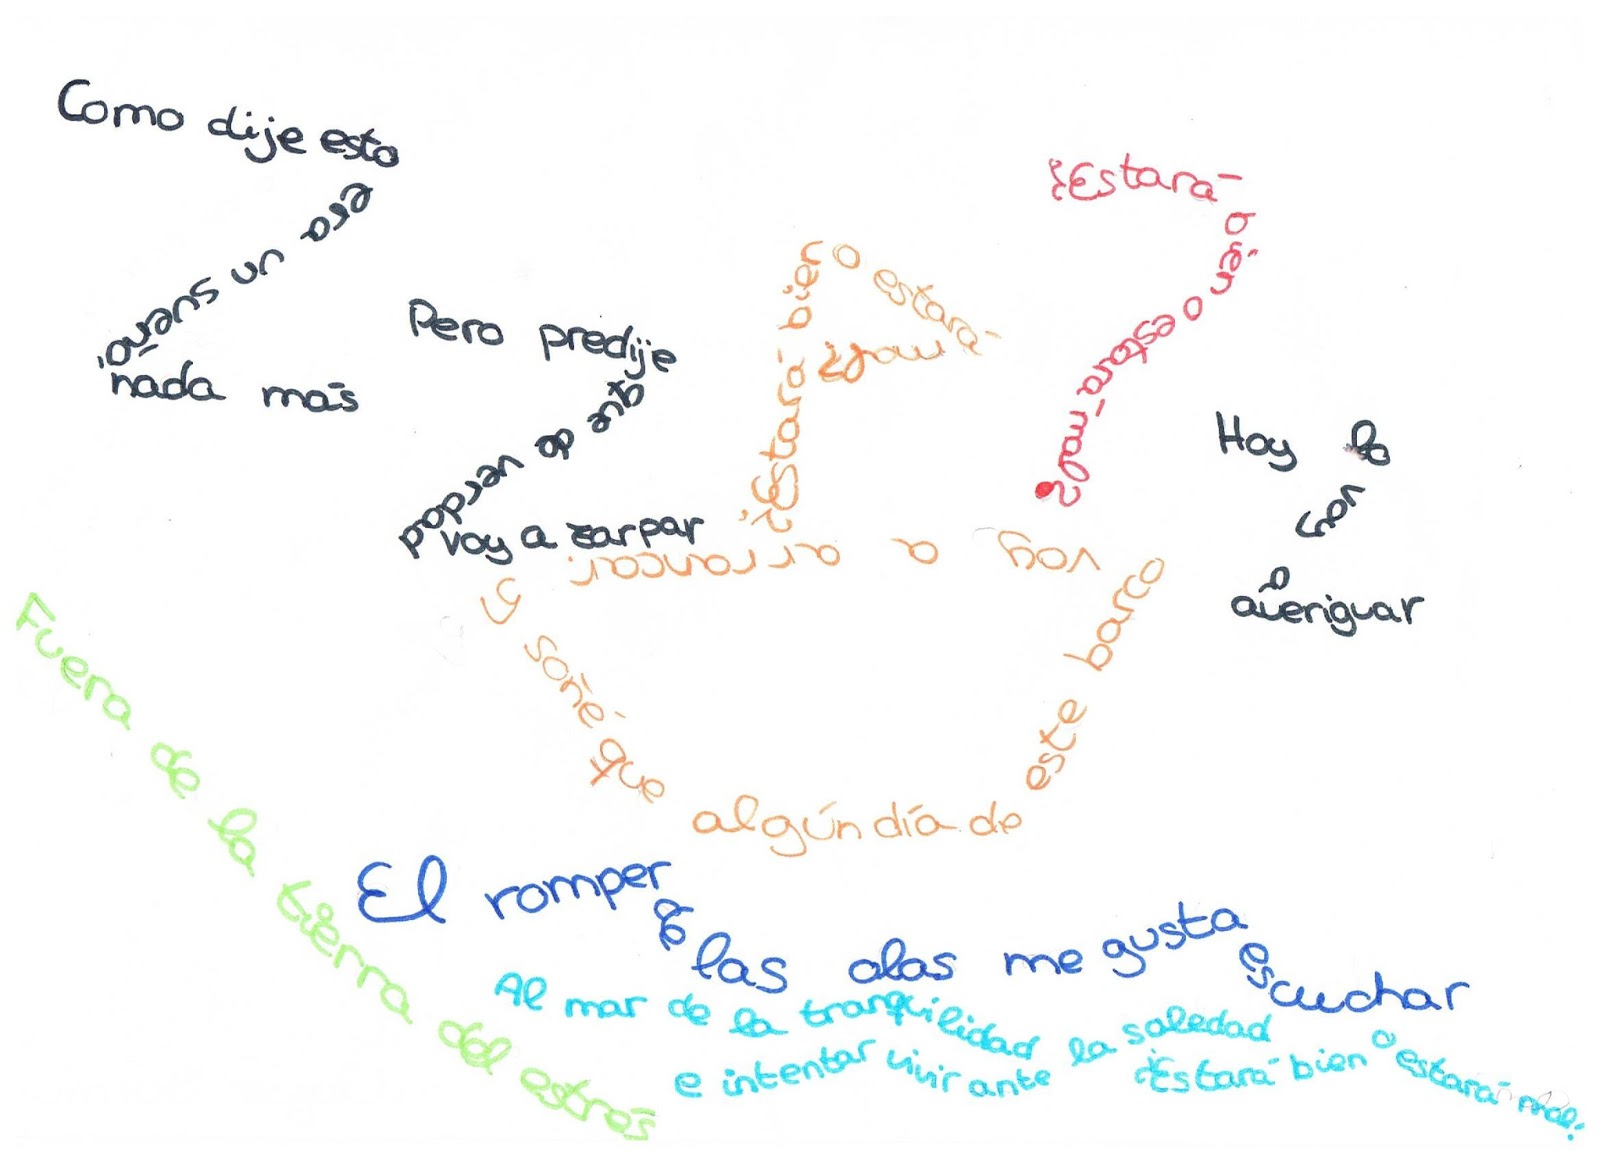 Como dije esto
era un sueño,
nada más
Pero predije
que de verdad
voy a zarpar
y soñé que algún día de este barco
voy a arrancar.
¿Estará bien o estará mal?
¿Estará bien o estará mal?
Hoy lo
voy
a
averiguar
Fuera de la tierra del estrés
El romper de las olas me gusta escuchar
Al mar de la tranquilidad
e intentar vivir ante la soledad
¿Estará bien o estará mal?